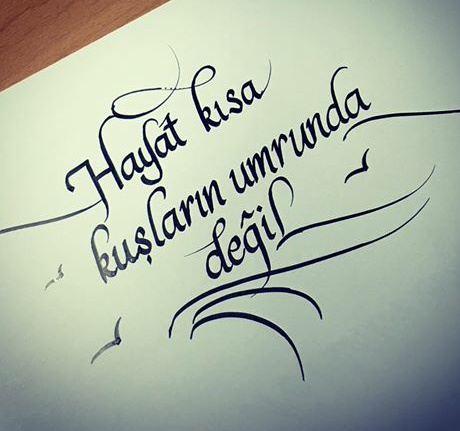 Hayat kısa
kuşların umrunda
değil